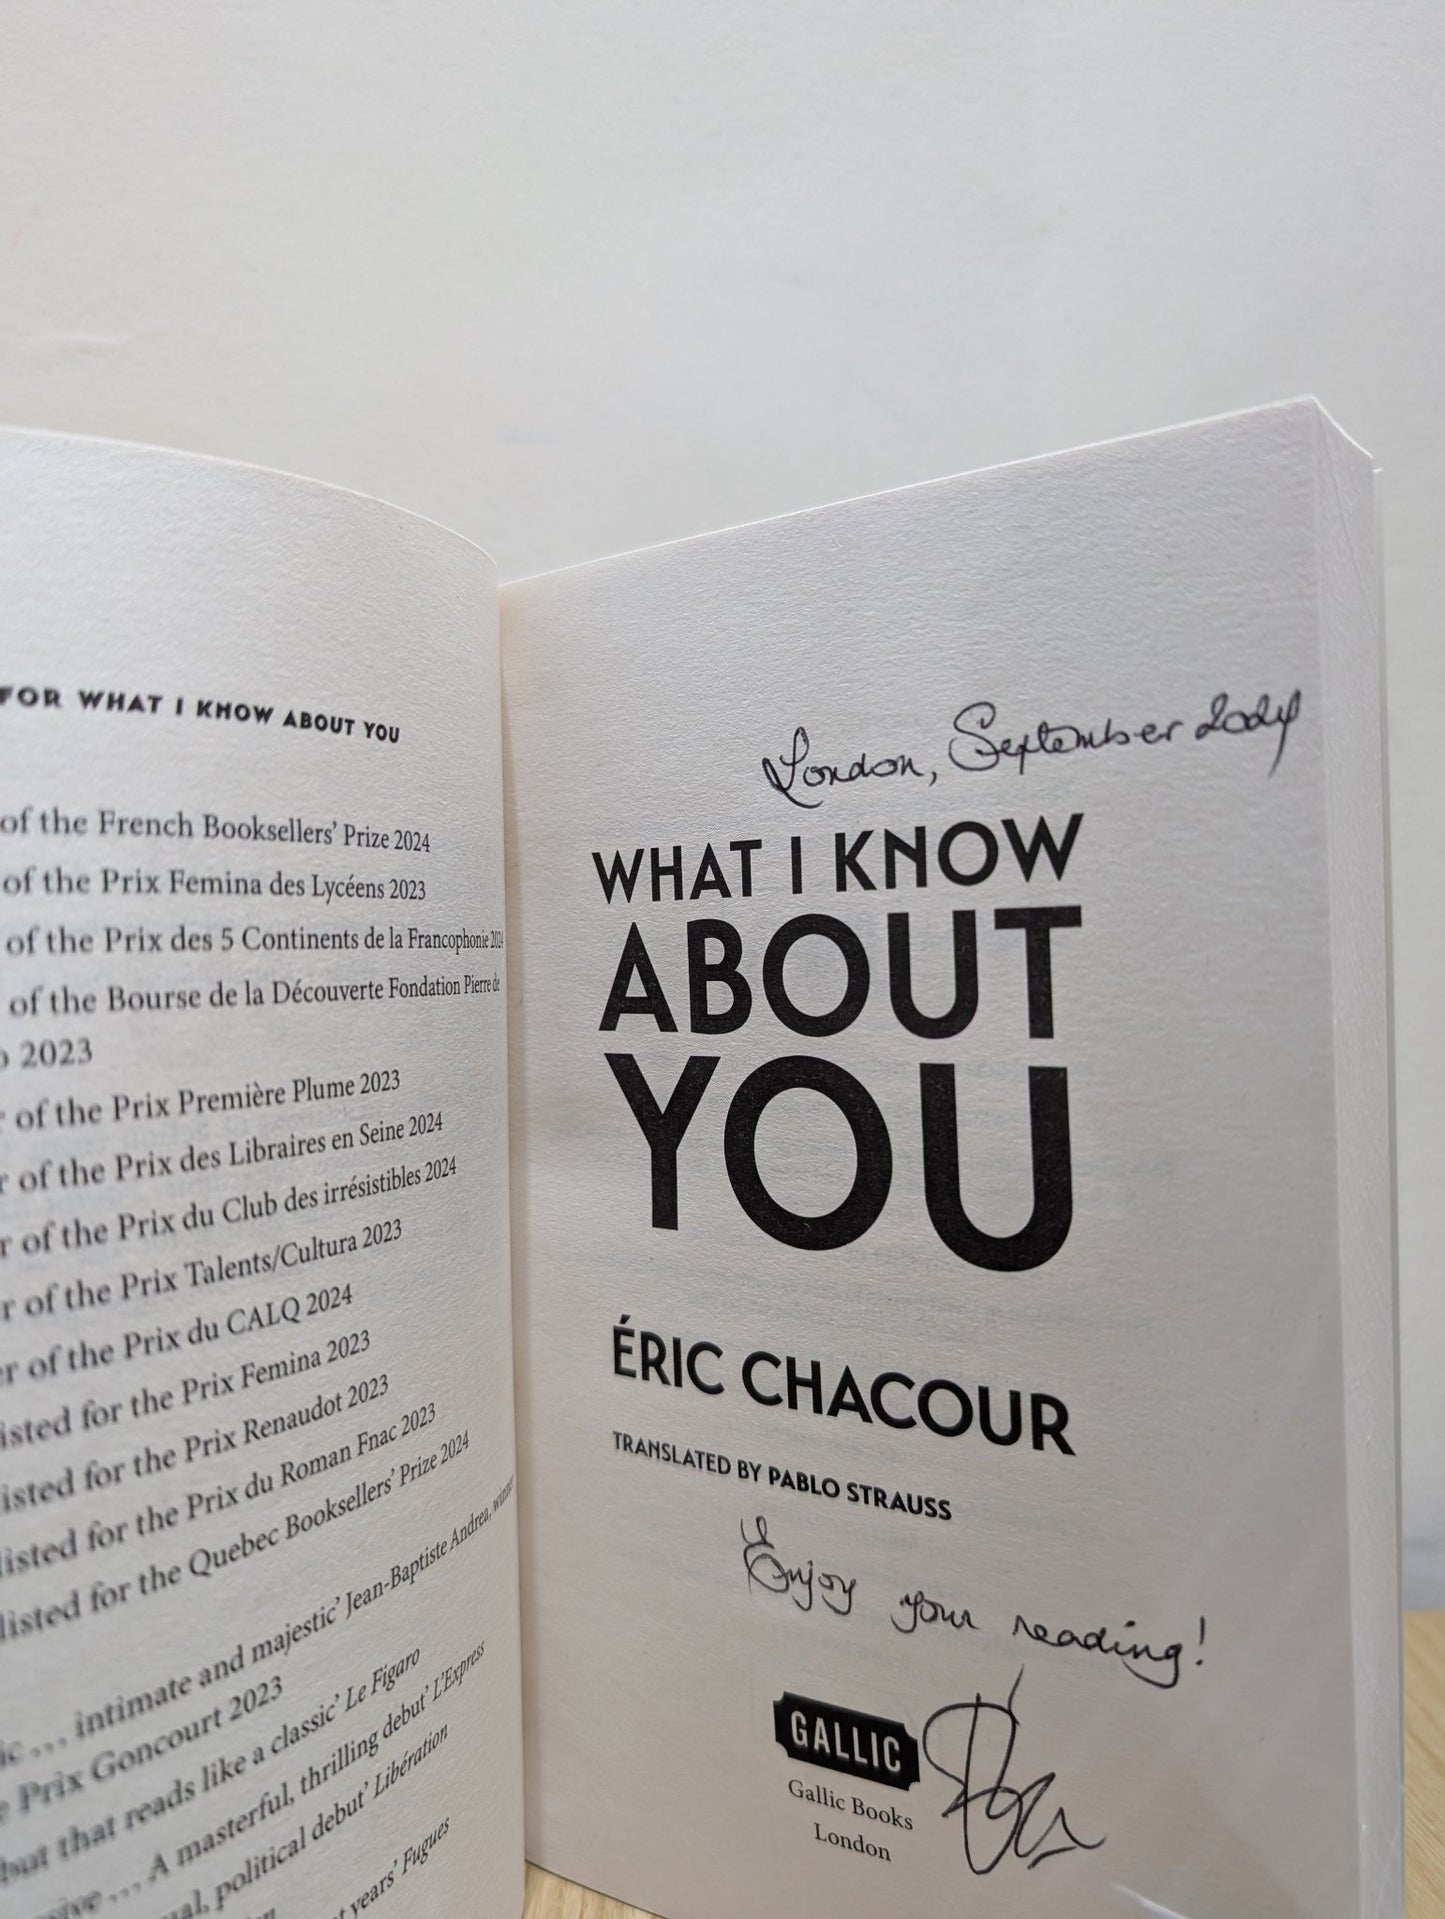 FOR WHAT I KNOW ABOUT YOU
of the French Booksellers’ Prize 2024
of the Prix Femina des Lycéens 2023
of the Prix des 5 Continents de la Francophonie 2024
of the Bourse de la Découverte Fondation Pierre de
2023
of the Prix Première Plume 2023
r of the Prix des Libraires en Seine 2024
r of the Prix du Club des irrésistibles 2024
r of the Prix Talents/Cultura 2023
er of the Prix du CALQ 2024
isted for the Prix Femina 2023
isted for the Prix Renaudot 2023
listed for the Prix du Roman Fnac 2023
listed for the Quebec Booksellers’ Prize 2024
ic … intimate and majestic’ Jean-Baptiste Andrea, winner
e Prix Goncourt 2023
but that reads like a classic’ Le Figaro
… A masterful, thrilling debut’ L’Express
al, political debut’ Libération
years’ Fugues
London, September 2024
WHAT I KNOW
ABOUT
YOU
ÉRIC CHACOUR
TRANSLATED BY PABLO STRAUSS
Enjoy your reading!
GALLIC
Gallic Books
London